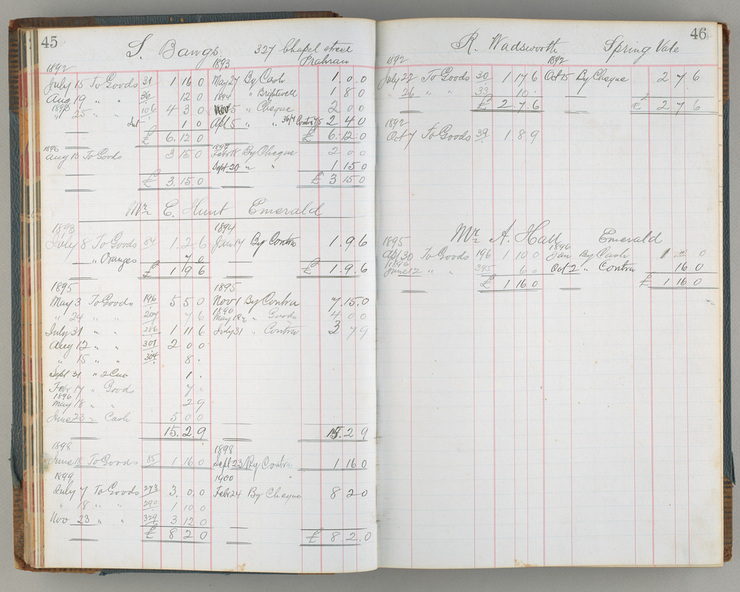 45
S. Bangs. 327 Chapel street
Prahran
1892 1893
July 15 To Goods 31 1 16 0 May 27 By Cash 1. 0 0
Aug 19 " " 36 12 0 1894 " 1 8 0
1893 " 25 " " 106 4 3 0 " Cheque 2 0 0
1 0 Apl 5 " " Contra 75 2 4 0
£ 6. 12 0 £ 6. 12 0
1896
Aug 13 To Goods 3 15 0 By Cheque 2 0 0
Sept 30 " " 1 15 0
£ 3. 15 0 £ 3 15 0
Mr. E. Hunt Emerald
1893 1894
July 8 To Goods 1. 2 6 Jan 14 By Contra 1. 9 6
" Oranges 7 6
£ 1 9 6 £ 1. 9 6
1895 1895
May 3 To Goods 196 5 5 0 Nov 1 By Contra 7. 15. 0
" 24 " " 204 7 6 May 19 " Goods 4 0 0
July 31 " " 216 1 11 6 July 31 " Contra 3 7 9
Aug 12 " " 301 2 0 0
" 15 " " 304 8 .
Sept 31 1 .
Feb 17 " Goods 7 .
1896
May 18 " " 2 9
June 23 " Cash 5 0 0
15. 2. 9 15. 2 9
1898 1898
June 18 To Goods 1 16 0 Sept 23 By Contra 1 16 0
1899 1900
July 7 To Goods 273 3. 0. 0 Feb 24 By Cheque 8 2 0
" 18 " " 290 1 10 0
Nov 23 " " 3 12 0
£ 8 2 0 £ 8 2. 0
46
R. Wadsworth Spring Vale
1892 1892
July 22 To Goods 30 1 17 6 Oct 15 By Cheque 2 7 6
" 26 " " 33 10 .
£ 2 7. 6 £ 2 7 6
1892
Oct 7 To Goods 39 1. 8 9
Mr. A. Hall Emerald
1895 1896
Apl 30 To Goods 196 1 10 0 Jan By Cash 1 0
1896
June 12 " " 345 6 0 Oct 2 " Contra 16 0
£ 1 16 0 £ 1 16 0